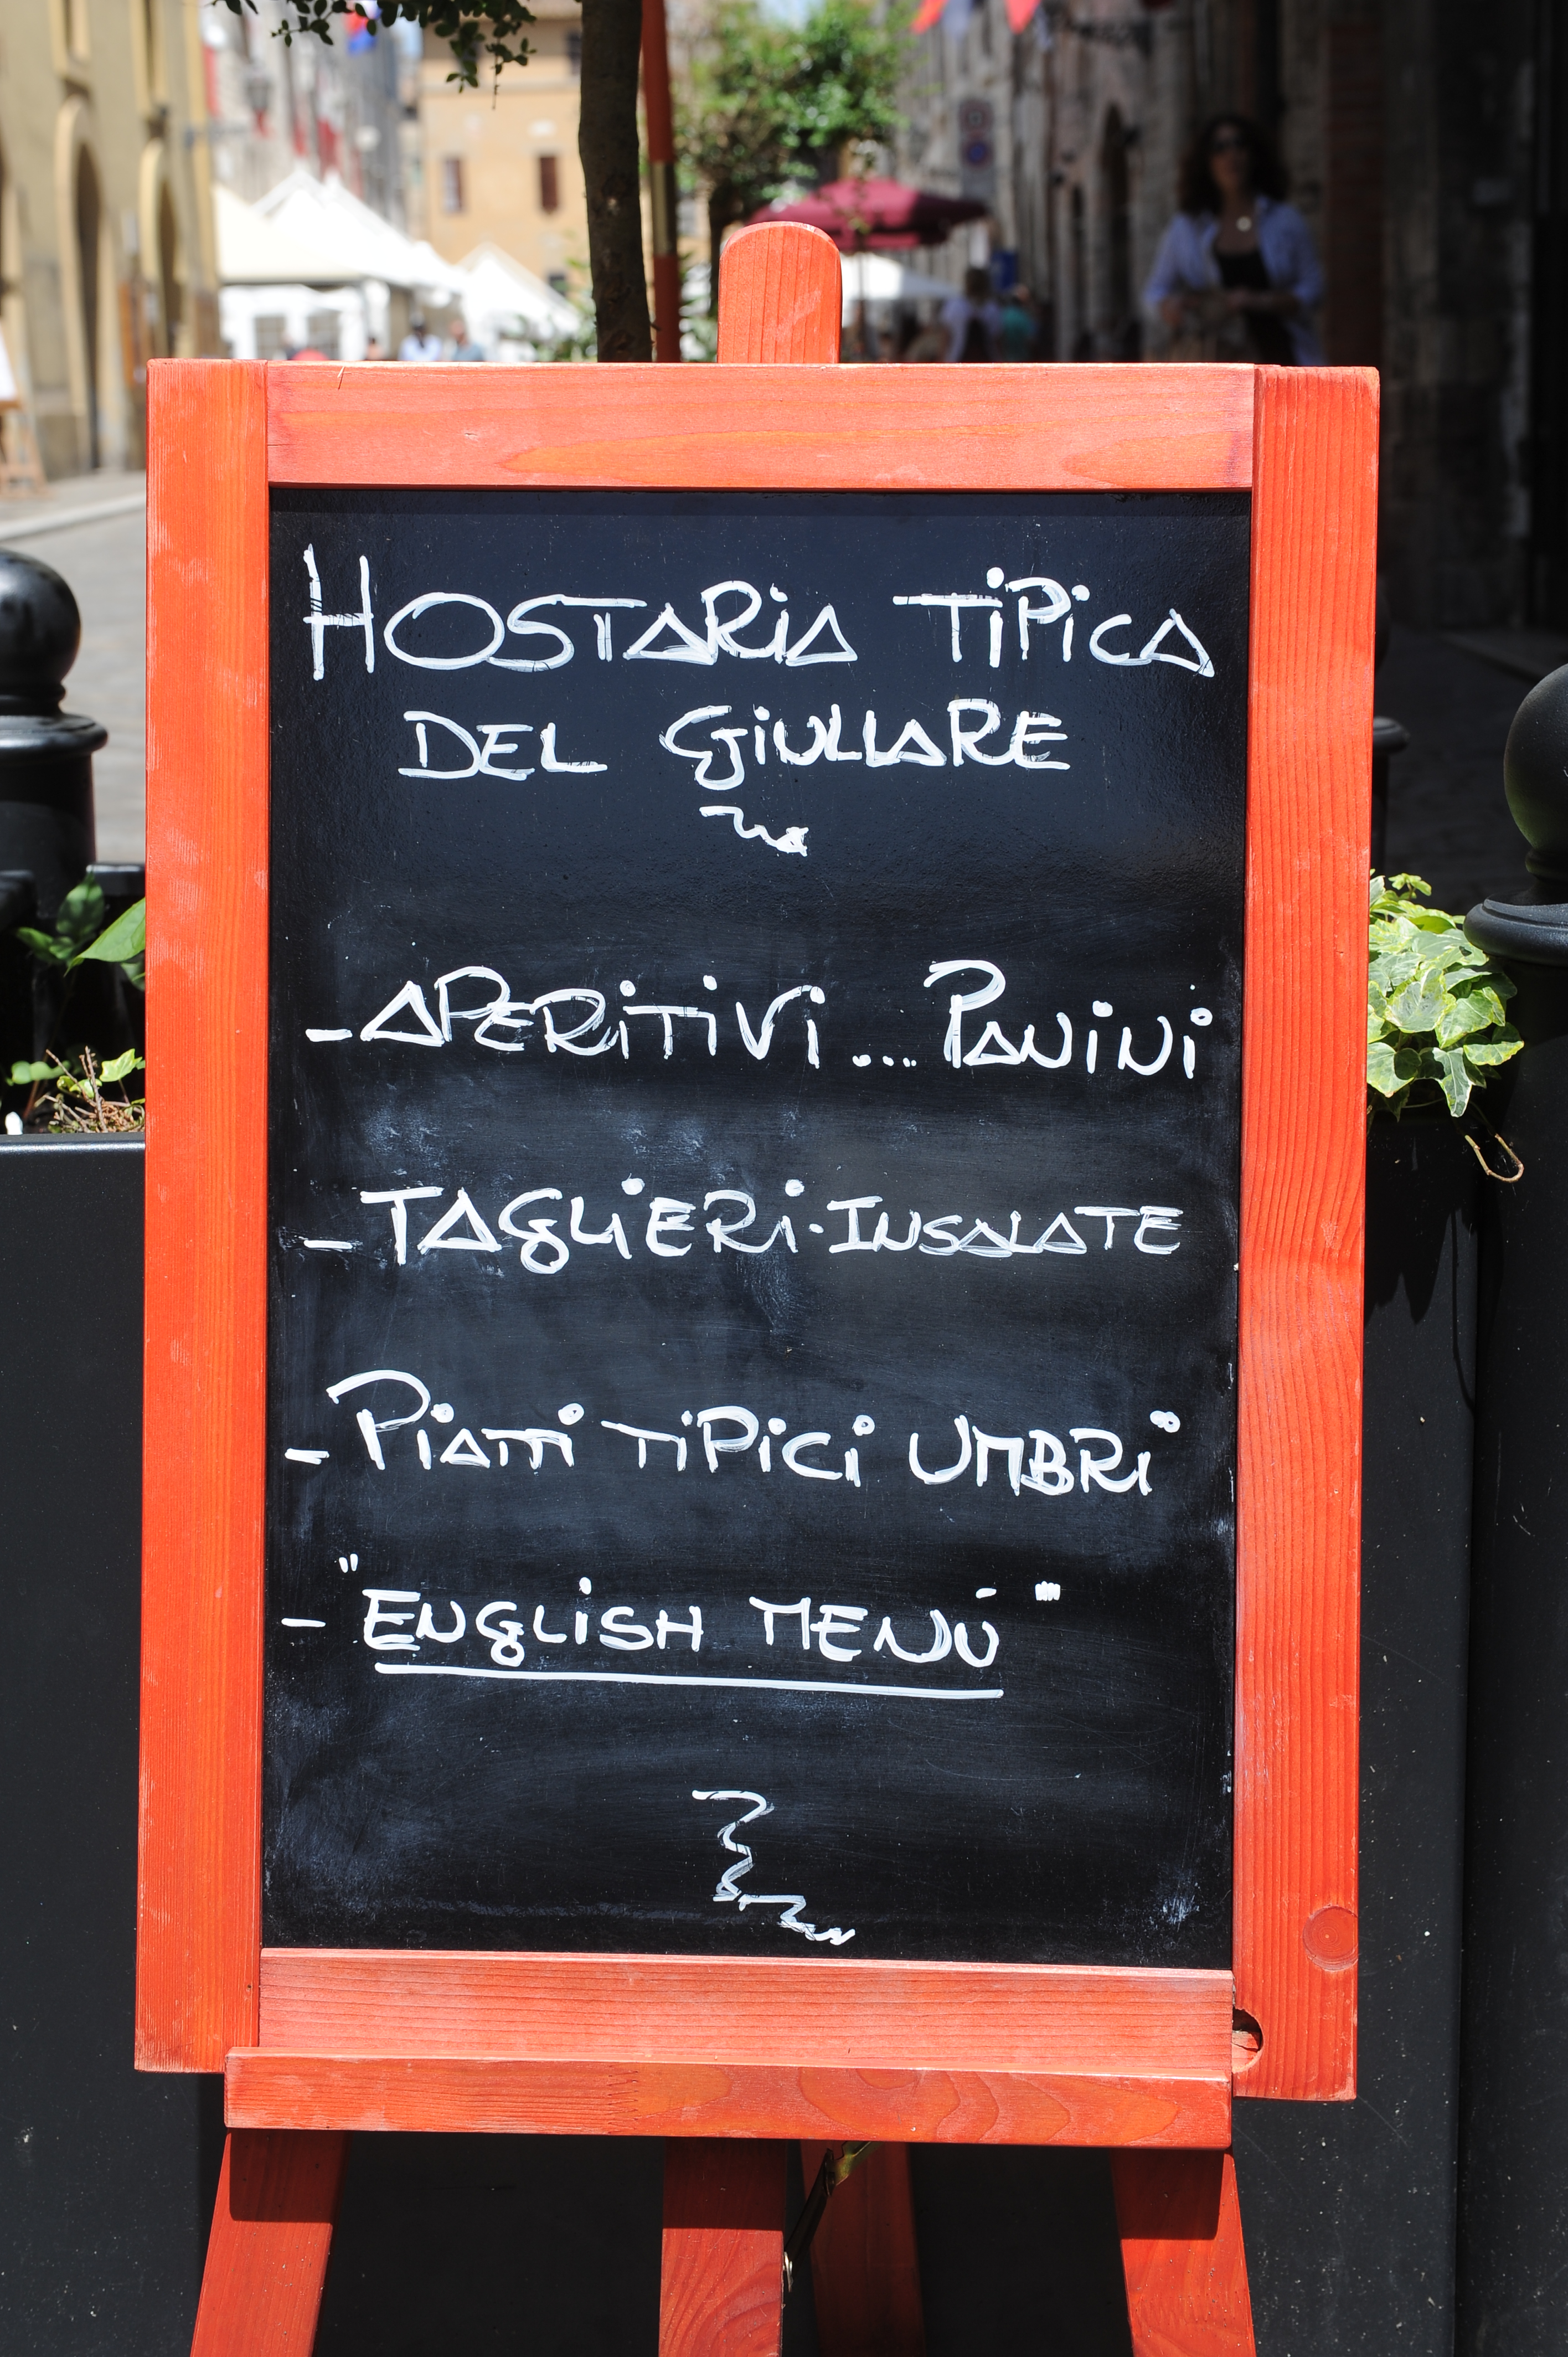 HOSTARIA TIPICA
DEL GIULLARE
- APERITIVI ... PANINI
- TAGLIERI - INSALATE
- PIATTI TIPICI UMBRI"
- "ENGLISH MENÚ"